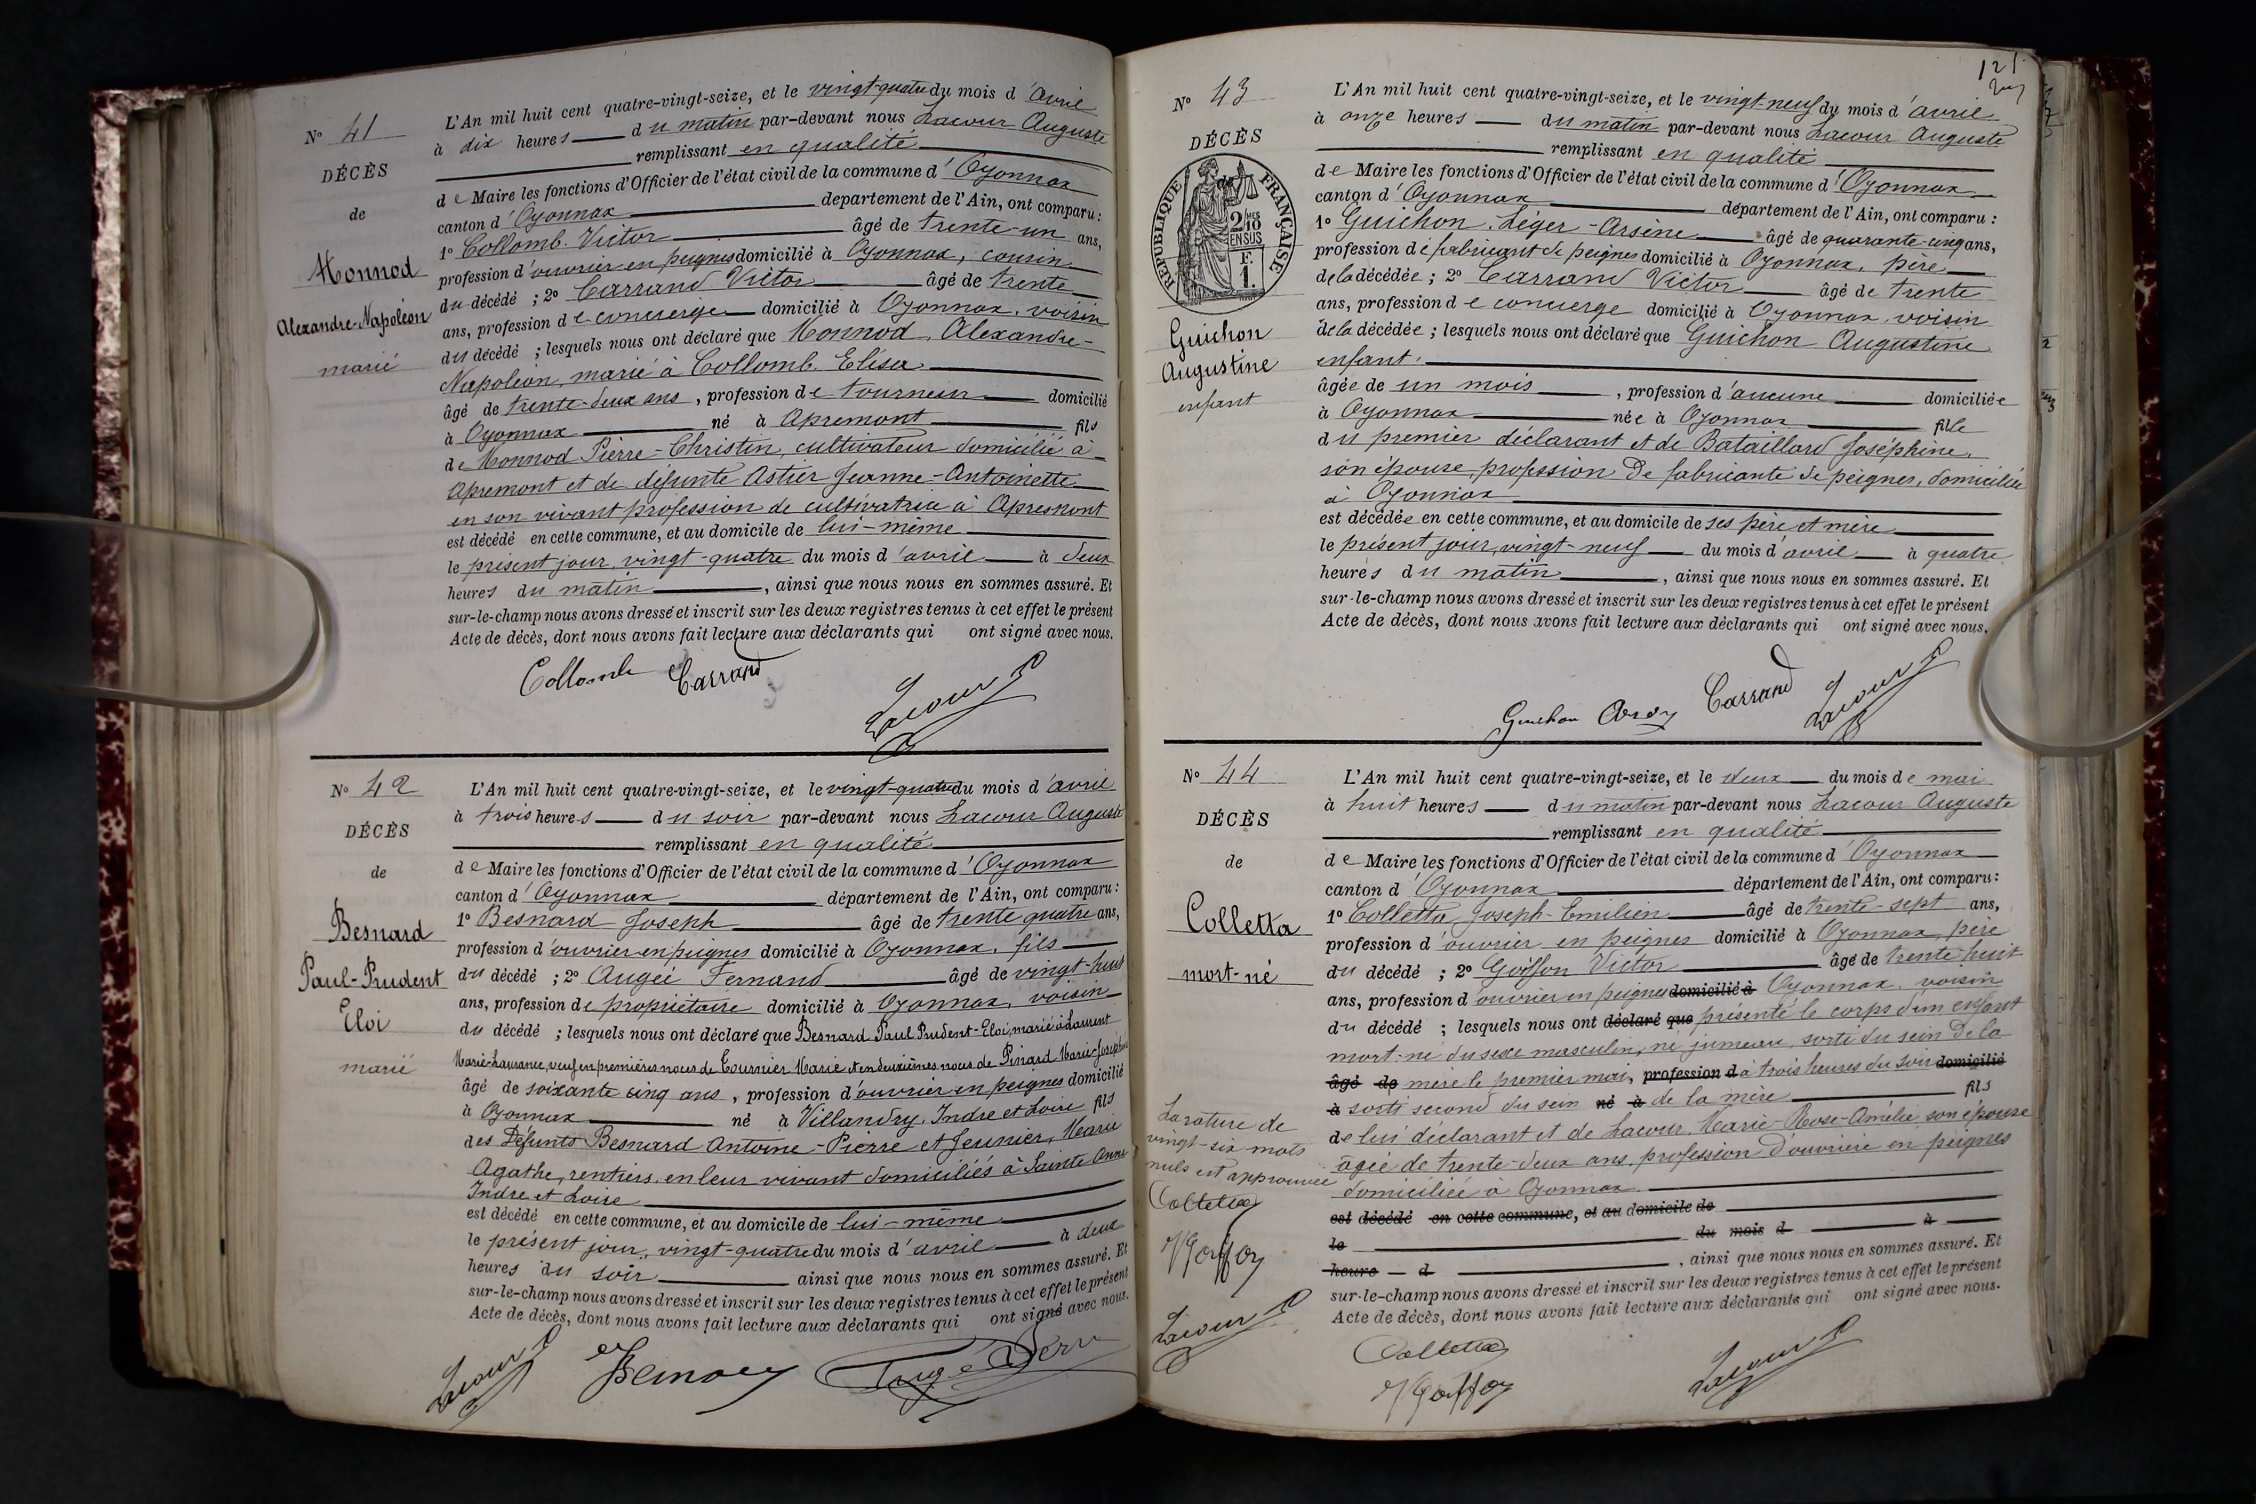 N° 41
DÉCÈS
de
Monnod
Alexandre-Napoléon
marié
L'An mil huit cent quatre-vingt-seize, et le vingt-quatre du mois d'avril
à dix heures du matin par-devant nous Lacour Auguste
remplissant en qualité
de Maire les fonctions d'Officier de l'état civil de la commune d'Oyonnax
canton d'Oyonnax département de l'Ain, ont comparu :
1° Collomb Victor âgé de trente-un ans,
profession d'ouvrier en peignes domicilié à Oyonnax, cousin
du décédé ; 2° Carrand Victor âgé de trente
ans, profession de concierge domicilié à Oyonnax, voisin
du décédé ; lesquels nous ont déclaré que Monnod, Alexandre-
Napoléon, marié à Collomb Elisa
âgé de trente-deux ans, profession de tourneur domicilié
à Oyonnax né à Apremont fils
de Monnod Pierre-Christin, cultivateur domicilié à
Apremont et de défunte Astier Jeanne-Antoinette
en son vivant profession de cultivatrice à Apremont
est décédé en cette commune, et au domicile de lui-même
le présent jour, vingt-quatre du mois d'avril à deux
heures du matin, ainsi que nous nous en sommes assuré. Et
sur-le-champ nous avons dressé et inscrit sur les deux registres tenus à cet effet le présent
Acte de décès, dont nous avons fait lecture aux déclarants qui ont signé avec nous.
Collomb Carrand
Lacour
N° 42
DÉCÈS
de
Besnard
Paul-Prudent
Eloi
marié
L'An mil huit cent quatre-vingt-seize, et le vingt-quatre du mois d'avril
à trois heures du soir par-devant nous Lacour Auguste
remplissant en qualité
de Maire les fonctions d'Officier de l'état civil de la commune d'Oyonnax
canton d'Oyonnax département de l'Ain, ont comparu :
1° Besnard Joseph âgé de trente quatre ans,
profession d'ouvrier en peignes domicilié à Oyonnax, fils
du décédé ; 2° Augée Fernand âgé de vingt-huit
ans, profession de propriétaire domicilié à Oyonnax, voisin
du décédé ; lesquels nous ont déclaré que Besnard Paul Prudent-Eloi, marié à Laurent
Marie-Laurance, veuf en premières noces de Tournier Marie et en deuxièmes noces de Pinard Marie-Josephe
âgé de soixante cinq ans, profession d'ouvrier en peignes domicilié
à Oyonnax né à Villandry, Indre et Loire fils
des Défunts Besnard Antoine-Pierre et Jeunier, Marie
Agathe, rentiers, en leur vivant domiciliés à Sainte Anne
Indre et Loire
est décédé en cette commune, et au domicile de lui-même
le présent jour, vingt-quatre du mois d'avril à deux
heures du soir ainsi que nous nous en sommes assuré. Et
sur-le-champ nous avons dressé et inscrit sur les deux registres tenus à cet effet le présent
Acte de décès, dont nous avons fait lecture aux déclarants qui ont signé avec nous.
Lacour
121
N° 43
DÉCÈS
de
REPUBLIQUE FRANÇAISE
2 10
EN SUS
F.
1.
Guichon
Augustine
enfant
L'An mil huit cent quatre-vingt-seize, et le vingt-neuf du mois d'avril
à onze heures du matin par-devant nous Lacour Auguste
remplissant en qualité
de Maire les fonctions d'Officier de l'état civil de la commune d'Oyonnax
canton d'Oyonnax département de l'Ain, ont comparu :
1° Guichon, Léger-Arsène âgé de quarante-cinq ans,
profession de fabricant de peignes domicilié à Oyonnax, père
de la décédée ; 2° Carrand Victor âgé de trente
ans, profession de concierge domicilié à Oyonnax, voisin
de la décédée ; lesquels nous ont déclaré que Guichon Augustine
enfant
âgée de un mois, profession d'aucune domiciliée
à Oyonnax née à Oyonnax fille
du premier déclarant et de Bataillard Joséphine,
son épouse, profession de fabricante de peignes, domiciliée
à Oyonnax
est décédée en cette commune, et au domicile de ses père et mère
le présent jour, vingt-neuf du mois d'avril à quatre
heures du matin, ainsi que nous nous en sommes assuré. Et
sur-le-champ nous avons dressé et inscrit sur les deux registres tenus à cet effet le présent
Acte de décès, dont nous avons fait lecture aux déclarants qui ont signé avec nous.
Guichon Carrand Lacour
N° 44
DÉCÈS
de
Colletta
mort-né
La rature de
vingt-six mots
nuls est approuvée
Colletta
Goiffon
Lacour
L'An mil huit cent quatre-vingt-seize, et le deux du mois de mai
à huit heures du matin par-devant nous Lacour Auguste
remplissant en qualité
de Maire les fonctions d'Officier de l'état civil de la commune d'Oyonnax
canton d'Oyonnax département de l'Ain, ont comparu :
1° Colletta, Joseph-Emilien âgé de trente-sept ans,
profession d'ouvrier en peignes domicilié à Oyonnax, père
du décédé ; 2° Goiffon Victor âgé de trente huit
ans, profession d'ouvrier en peignes domicilié à Oyonnax, voisin
du décédé ; lesquels nous ont déclaré que présenté le corps d'un enfant
mort-né du sexe masculin, né jumeau, sorti du sein de la
âgé de mère le premier mai, profession d à trois heures du soir domicilié
à sorti second du sein né à de la mère fils
de lui déclarant et de Lacour, Marie-Rose-Amélie son épouse
âgée de trente-deux ans, profession d'ouvrière en peignes
domiciliée à Oyonnax
est décédé en cette commune, et au domicile de
le du mois d à
heure d, ainsi que nous nous en sommes assuré. Et
sur-le-champ nous avons dressé et inscrit sur les deux registres tenus à cet effet le présent
Acte de décès, dont nous avons fait lecture aux déclarants qui ont signé avec nous.
Colletta
Goiffon
Lacour